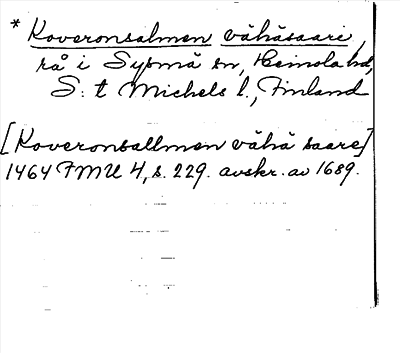 * Koveronsalmen vähäsaari,
rå i Sysmä sn, Heinola hd,
S:t Michels l., Finland
[Koveronsallmen vähä saare]
1464 FMU 4, s. 229. avskr. av 1689.